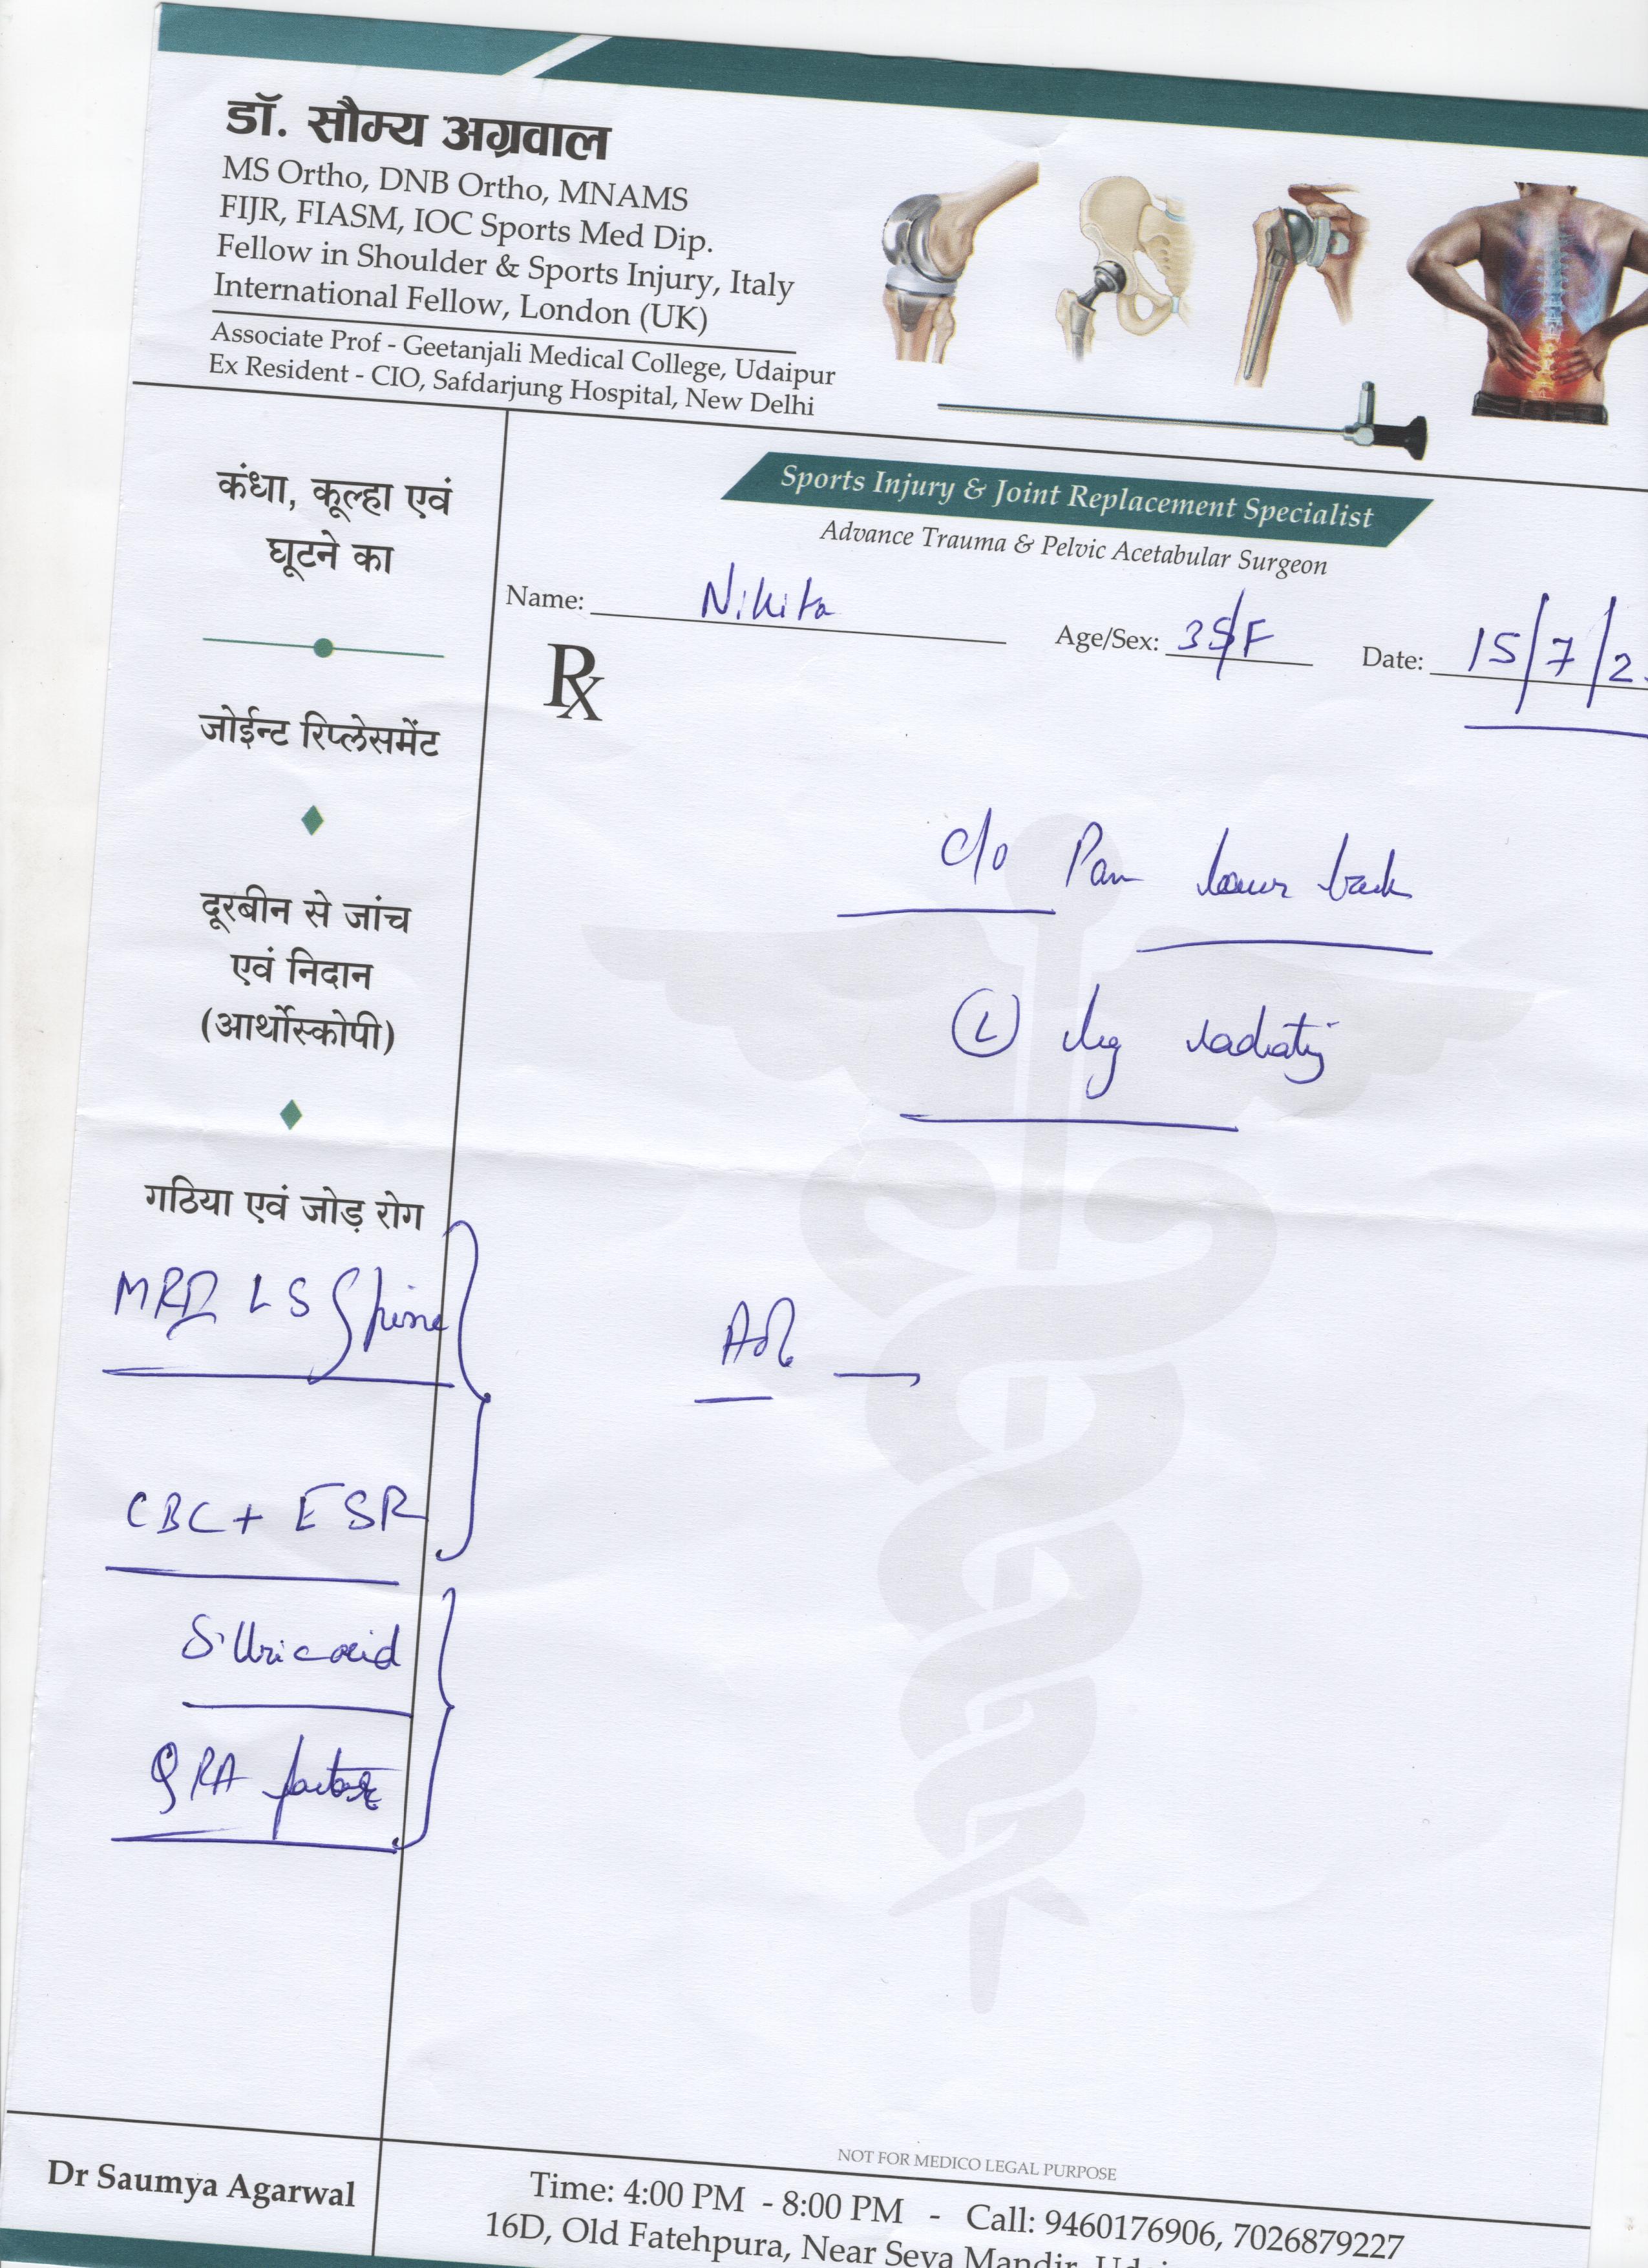 डॉ. सौम्य अग्रवाल
MS Ortho, DNB Ortho, MNAMS
FIJR, FIASM, IOC Sports Med Dip.
Fellow in Shoulder & Sports Injury, Italy
International Fellow, London (UK)
Associate Prof - Geetanjali Medical College, Udaipur
Ex Resident - CIO, Safdarjung Hospital, New Delhi
Sports Injury & Joint Replacement Specialist
Advance Trauma & Pelvic Acetabular Surgeon
Name: Nikita Age/Sex: 35/F Date: 15/7/2
Rx
कंधा, कूल्हा एवं
घूटने का
जोईन्ट रिप्लेसमेंट
दूरबीन से जांच
एवं निदान
(आर्थोस्कोपी)
गठिया एवं जोड़ रोग
c/o Pain lower back
(L) leg radiating
MRI LS Spine
CBC + ESR
S. Uric acid
RA factor
NOT FOR MEDICO LEGAL PURPOSE
Dr Saumya Agarwal
Time: 4:00 PM - 8:00 PM - Call: 9460176906, 7026879227
16D, Old Fatehpura, Near Seva Mandir,